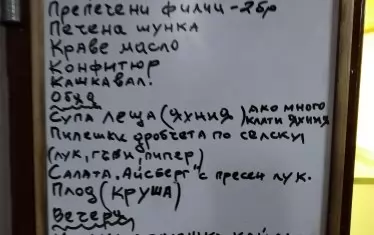 Препечени филии - 2бр
Печена шунка
Краве масло
Конфитюр
Кашкавал.
Обяд
Супа леща (яхния) ако много клати яхния
Пилешки дробчета по селску
(лук, гъби, пипер)
Салата „Айсберг" с пресен лук.
Плод (круша)
Вечеря